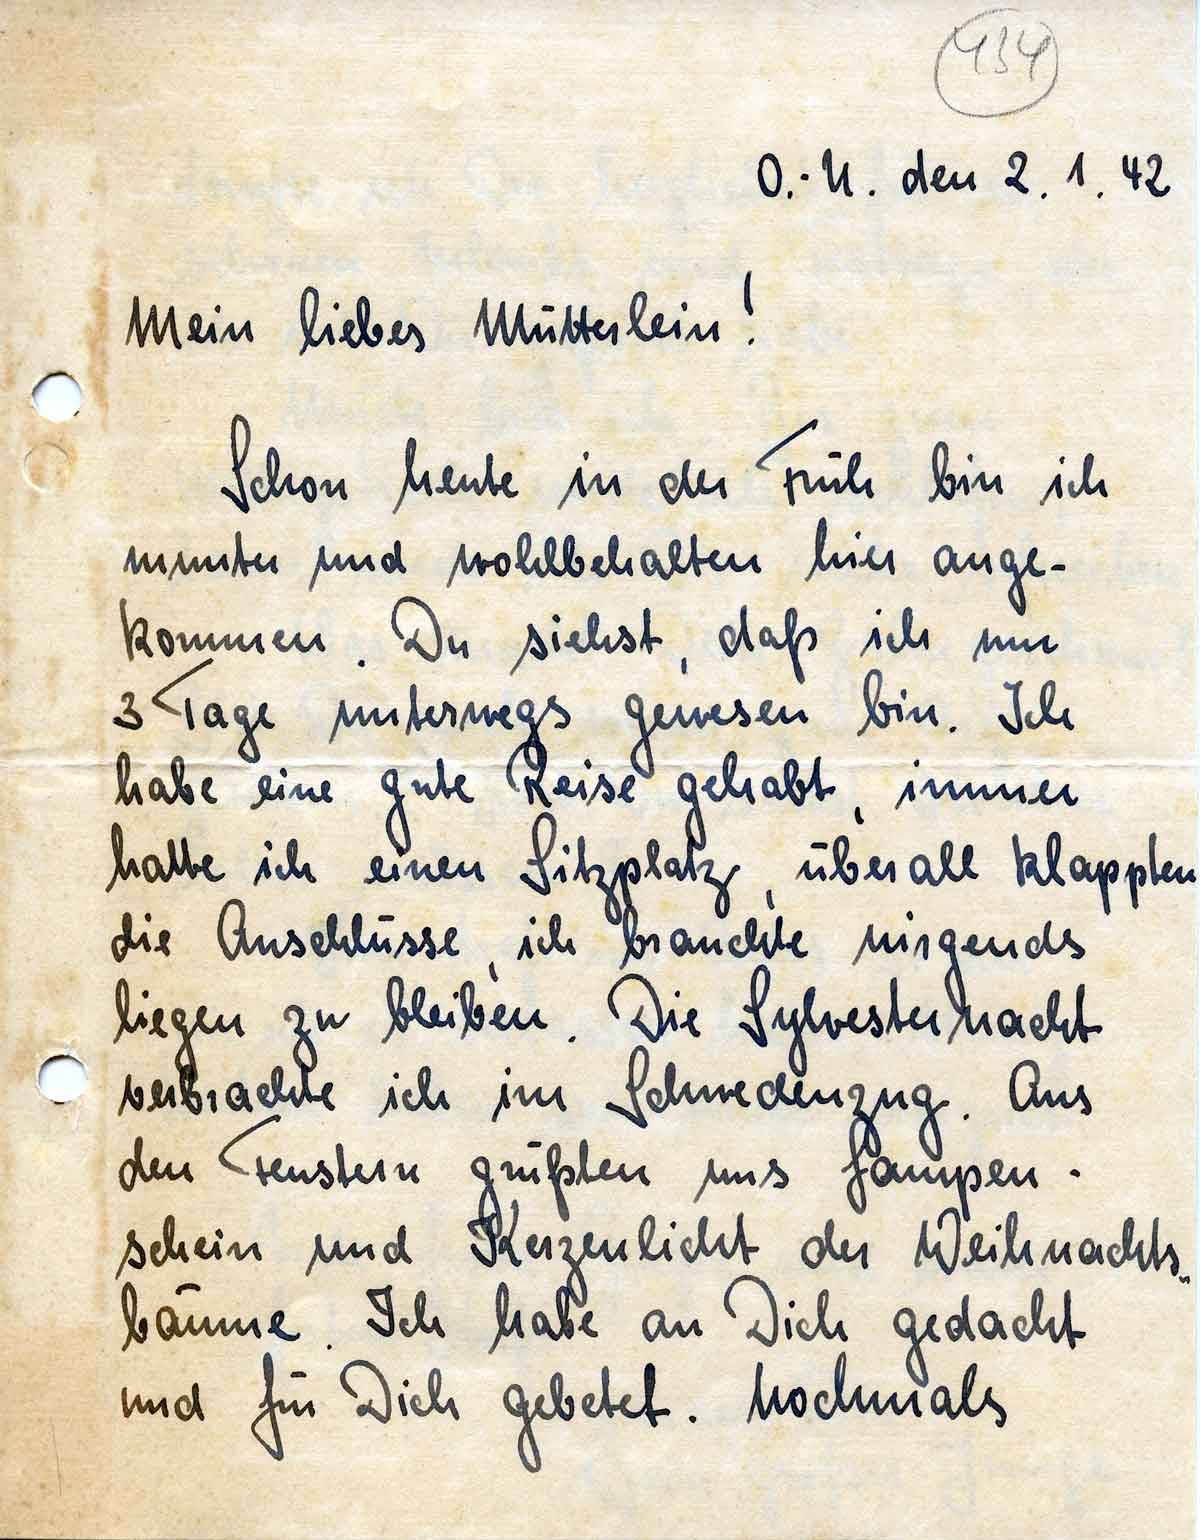 434
O.-U. den 2. 1. 42
Mein liebes Mütterlein!
Schon heute in der Früh bin ich
munter und wohlbehalten hier ange-
kommen. Du siehst, daß ich nur
3 Tage unterwegs gewesen bin. Ich
habe eine gute Reise gehabt, immer
hatte ich einen Sitzplatz, überall klappten
die Anschlüsse, ich brauchte nirgends
liegen zu bleiben. Die Sylvesternacht
verbrachte ich im Schwedenzug. Aus
den Fenstern grüßten uns Lampen-
schein und Kerzenlicht der Weihnachts-
bäume. Ich habe an Dich gedacht
und für Dich gebetet. Nochmals